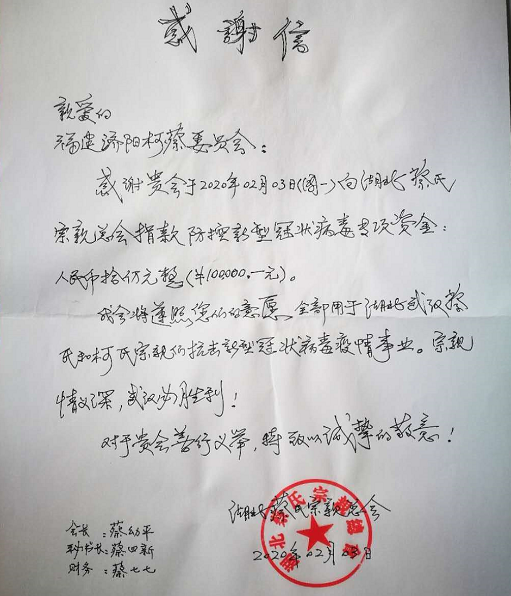 感謝信
亲爱的
福建济阳柯蔡委员会：
感谢贵会于2020年02月03日(周一)向湖北蔡氏
宗亲总会捐款防控新型冠状病毒专项资金：
人民币拾仟元整(￥100000.一元)。
我会将遵照您们的意愿，全部用于湖北武汉蔡
氏和柯氏宗亲们抗击新型冠状病毒疫情事业。宗亲
情义深，武汉必胜利！
对于贵会善行义举，特致以诚挚的敬意！
湖北蔡氏宗亲总会
2020年02月03日
会长：蔡幼平
秘书长：蔡四新
财务：蔡七七
湖北蔡氏宗亲总会